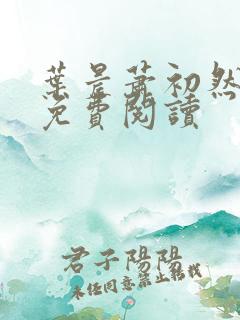 葉辰蕭初然
免費閱讀
君子陽陽
未任同意禁止轉載